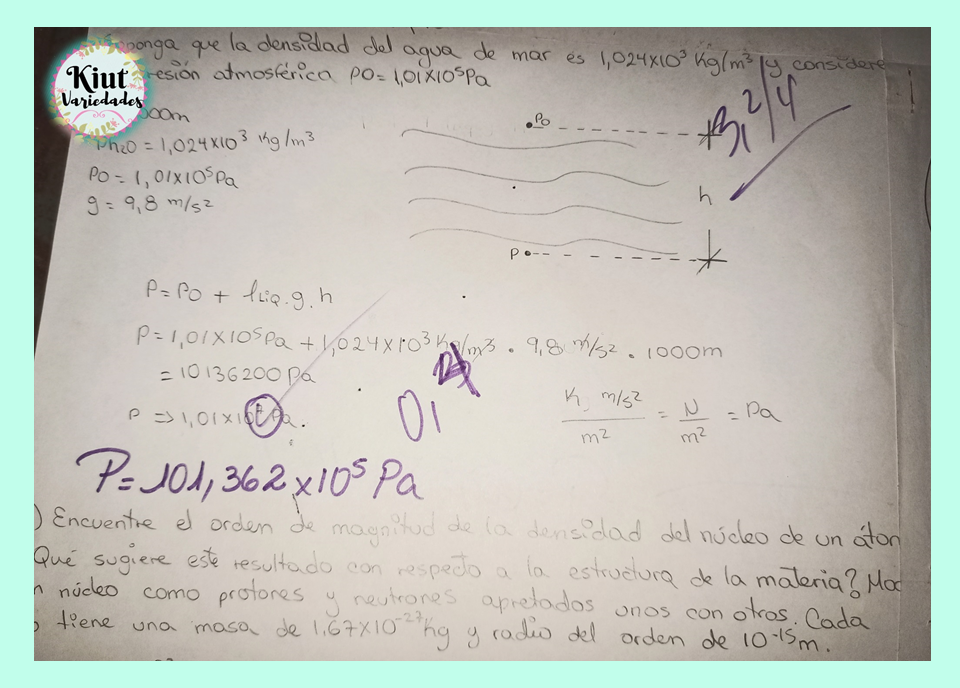 Kiut
Variedades
ponga que la densidad del agua de mar es 1,024x10³ Kg/m³ y considere
resión atmosférica PO= 1,01x10⁵Pa
000m
ρh20 = 1,024x10³ Kg/m³
PO = 1,01x10⁵Pa
g = 9,8 m/s²
PO
h
P
P = PO + ρLiq.g.h
P = 1,01x10⁵Pa + 1,024x10³ Kg/m³ . 9,8 m/s² . 1000m
= 10136200 Pa
P => 1,01x10⁷ Pa.
K. m/s² / m² = N / m² = Pa
P = 101,362 x 10⁵ Pa
) Encuentre el orden de magnitud de la densidad del núcleo de un áton
Qué sugiere este resultado con respecto a la estructura de la materia? Mod
n núcleo como protones y neutrones apretados unos con otros. Cada
o tiene una masa de 1,67x10⁻²⁷kg y radio del orden de 10⁻¹⁵m.